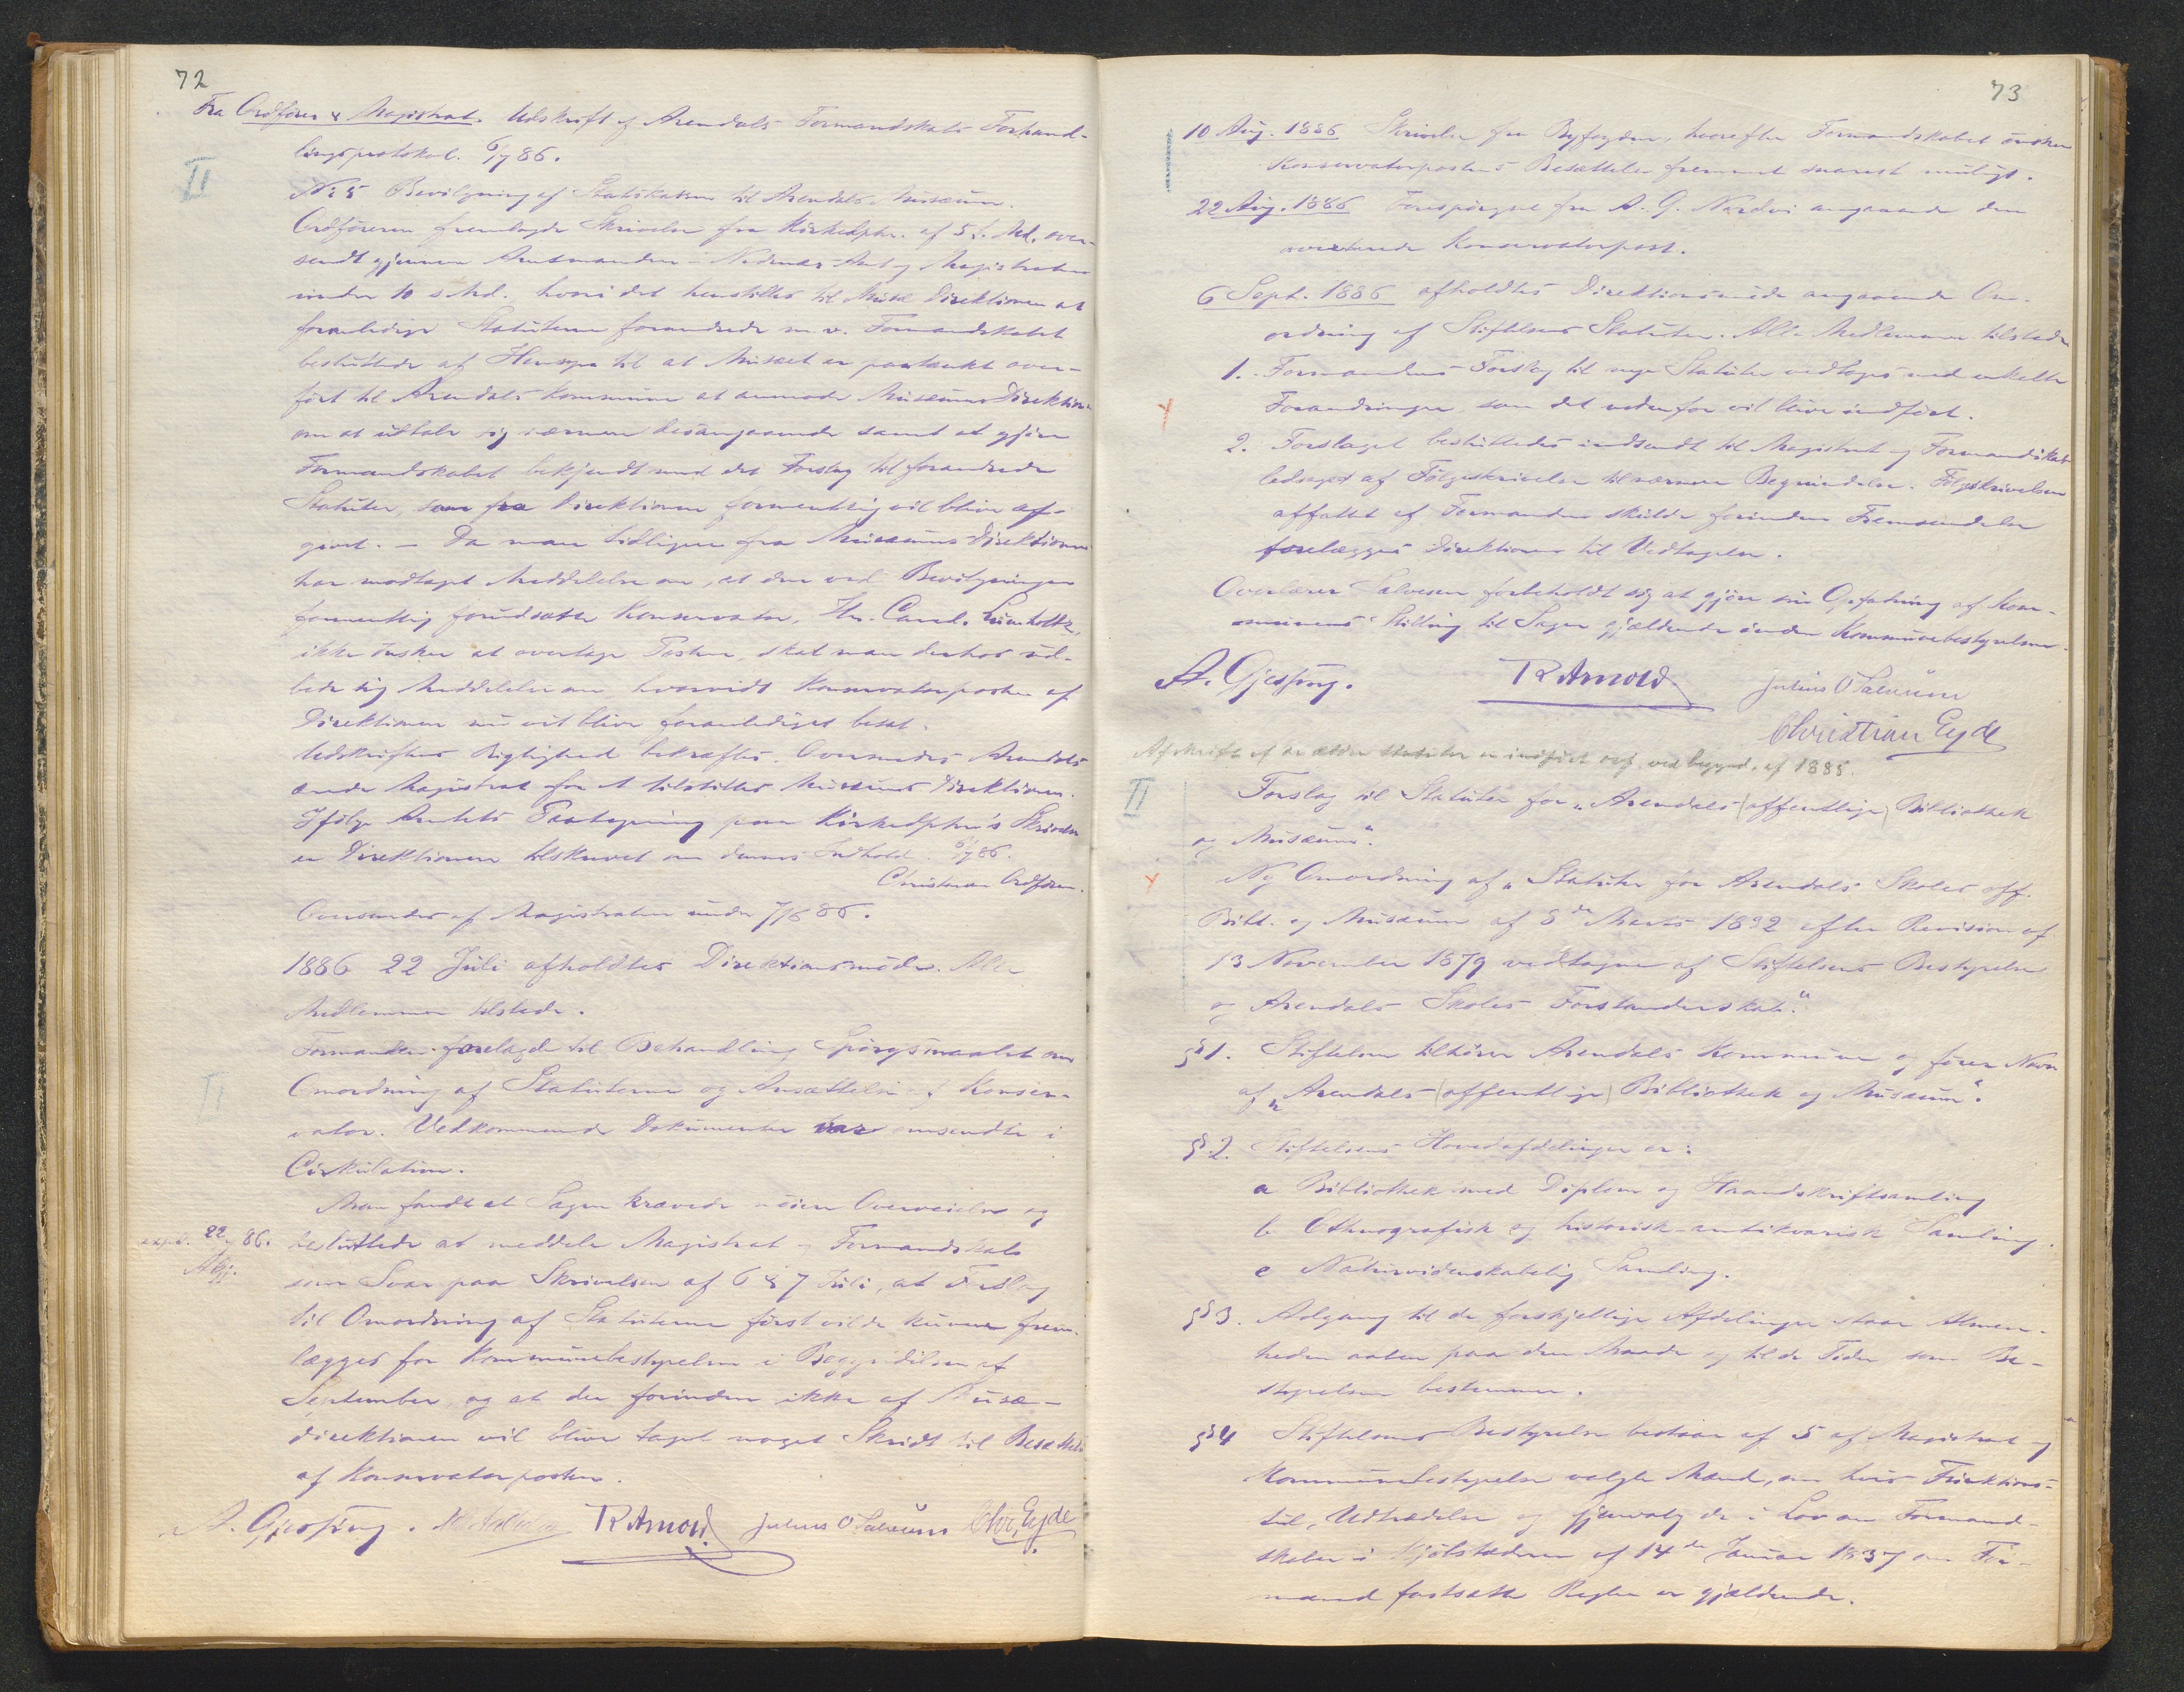 72
Fra Ordfører & Magistrat. Udskrift af Arendals Formandskabs Forhand-
lingsprotokol. 6/7 86.
II
No 5 Bevilgning af Statskassen til Arendals Musæum.
Ordføreren fremlagde Skrivelse fra Kirkedptm. af 5 f. Md. over-
sendt gjennem Amtmanden i Nedenæs Amt og Magistraten
under 10 s. Md. hvori det henstilles til Musæ Direktionen at
foranledige Statuterne forandrede m. v. Formandskabet
besluttede af Hensyn til at Musæet er paatænkt over-
ført til Arendals Kommune at anmode Musæums Direktionen
om at udtale sig nærmere desangaaende samt at gjøre
Formandskabet bekjendt med det Forslag til forandrede
Statuter, som fra Direktionen formentlig vil blive af-
givet. — Da man tidligere fra Musæums Direktionen
har modtaget Meddelelse om, at den ved Bevilgningen
formentlig forudsatte Konservator, Hr. Cand. Lumholtz,
ikke ønsker at overtage Posten, skal man derhos ud-
bede sig Meddelelse om, hvorvidt Konservatorposten af
Direktionen nu vil blive foranlediget besat.
Udskriftens Rigtighed bekræftes. Oversendes Arendals
ærede Magistrat for at tilstilles Musæums Direktionen.
Ifølge Amtets Paategning paa Kirkedptm's Skrivelse
er Direktionen tilskrevet om dennes Indhold. 6/7 86.
Ordfører.
Oversendes af Magistraten under 7/7 86.
1886 22 Juli afholdtes Direktionsmøde. Alle
Medlemmer tilstede.
Formanden forelagde til Behandling Spørgsmaalet om
II
Omordning af Statuterne og Ansættelse af Konser-
vator. Vedkommende Dokumenter var omsendte i
Cirkulation.
Man fandt at Sagen krævede nøiere Overveielse og
exped. 22/7 86. besluttede at meddele Magistrat og Formandskab
A.Gj.
som Svar paa Skrivelsen af 6 & 7 Juli, at Forslag
til Omordning af Statuterne først vilde kunne frem-
lægges for Kommunebestyrelsen i Begyndelsen af
September, og at der forinden ikke af Musæ-
direktionen vil blive taget noget Skridt til Besættelse
af Konservatorposten.
A. Gjessing. R Arnold Julius O Salvesen Chr. Eyde
73
10 Aug. 1886 Skrivelse fra Byfogden, hvorefter Formandskabet ønsker
Konservatorpostens Besættelse fremmet snarest muligt.
22 Aug. 1886 Forespørgsel fra A. G. angaaende den
averterede Konservatorpost.
6 Sept. 1886 afholdtes Direktionsmøde angaaende Om-
ordning af Stiftelsens Statuter. Alle Medlemmer tilstede
1. Formandens Forslag til nye Statuter vedtoges med enkelte
Forandringer, som det nedenfor vil blive indført.
2. Forslaget besluttedes indsendt til Magistrat og Formandskab
ledsaget af Følgeskrivelse til nærmere Begrundelse. Følgeskrivelsen
affattet af Formanden skulde forinden Fremsendelse
forelægges Direktionen til Vedtagelse.
Overlærer Salvesen forbeholdt sig at gjøre sin Opfatning af Kom-
munens Stilling til Sagen gjældende under Kommunebestyrelsen.
A. Gjessing. R Arnold. Julius O Salvesen
Christian Eyde
Afskrift af de ældre Statuter er indført ved begynd. af 1885.
II
Forslag til Statuter for „Arendals (offentlige) Bibliothek
og Musæum“.
Ny Omordning af „Statuter for Arendals Skoles off.
Bibl. og Musæum af 8de Marts 1832 efter Revision af
13 November 1879 vedtagne af Stiftelsens Bestyrelse
og Arendals Skoles Forstanderskab.“
§ 1. Stiftelsen tilhører Arendals Kommune og fører Navn
af „Arendals (offentlige) Bibliothek og Musæum“.
§ 2. Stiftelsens Hovedafdelinger er:
a Bibliothek med Diplom og Haandskriftsamling
b Ethnografisk og historisk-antikvarisk Samling.
c Naturvidenskabelig Samling.
§ 3. Adgang til de forskjellige Afdelinger staar Almen-
heden aaben paa den Maade og til de Tider som Be-
styrelsen bestemmer.
§ 4 Stiftelsens Bestyrelse bestaar af 5 af Magistrat og
Kommunebestyrelse valgte Mænd, om hvis Funktions-
tid, Udtrædelse og Gjenvalg de i Lov om Formand-
skaber i Kjøbstæderne af 14de Januar 1837 om For-
mænd fastsatte Regler er gjældende.